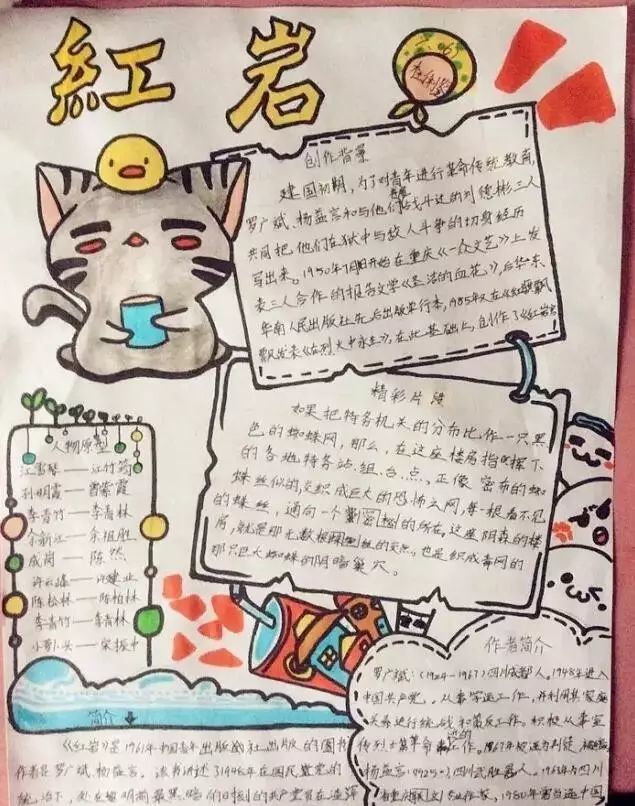 紅岩
创作背景
建国初期，为了对青年进行革命传统教育，
罗广斌、杨益言和与他们战斗过的刘德彬三人
共同把他们在狱中与敌人斗争的切身经历
写出来。1950年7月开始在重庆《一众文艺》上发
表三人合作的报告文学《圣洁的血花》，后华东
华南人民出版社先后出版单行本，
飘发表《在烈火中永生》，在此基础上，创作了《红岩》
精彩片段
如果把特务机关的分布比作一只黑
色的蜘蛛网，那么，在这座楼房指挥下
的各地特务站、组、台、点、正像密布的蜘
蛛丝似的，交织成巨大的恐怖之网，每一根看不见
的蛛丝，通向一个的所在，这座阴森的楼
房，就是那无数根的交点，也是织成毒网的
那只巨大蜘蛛的阴暗巢穴。
人物原型
江雪琴——江竹筠
孙明霞——曾紫霞
李青竹——李青林
余新江——余祖胜
成岗——陈然
许云峰——许建业
陈松林——陈柏林
李青竹——李青林
小萝卜头——宋振中
简介
《红岩》是1961年中国青年出版社出版的图书
作者是罗广斌、杨益言。该书讲述了1948年在国民党的
统治下，处在黎明前最黑暗们日子的共产党员在
作者简介
罗广斌：(1924-1967)四川成都人，1948年进入
中国共产党，从事学运工作，并利用其家庭
关系进行统战和策反工作。积极从事宣
传烈士革命的工作。1967年被迫
杨益言：(1925-)四川武胜县人。